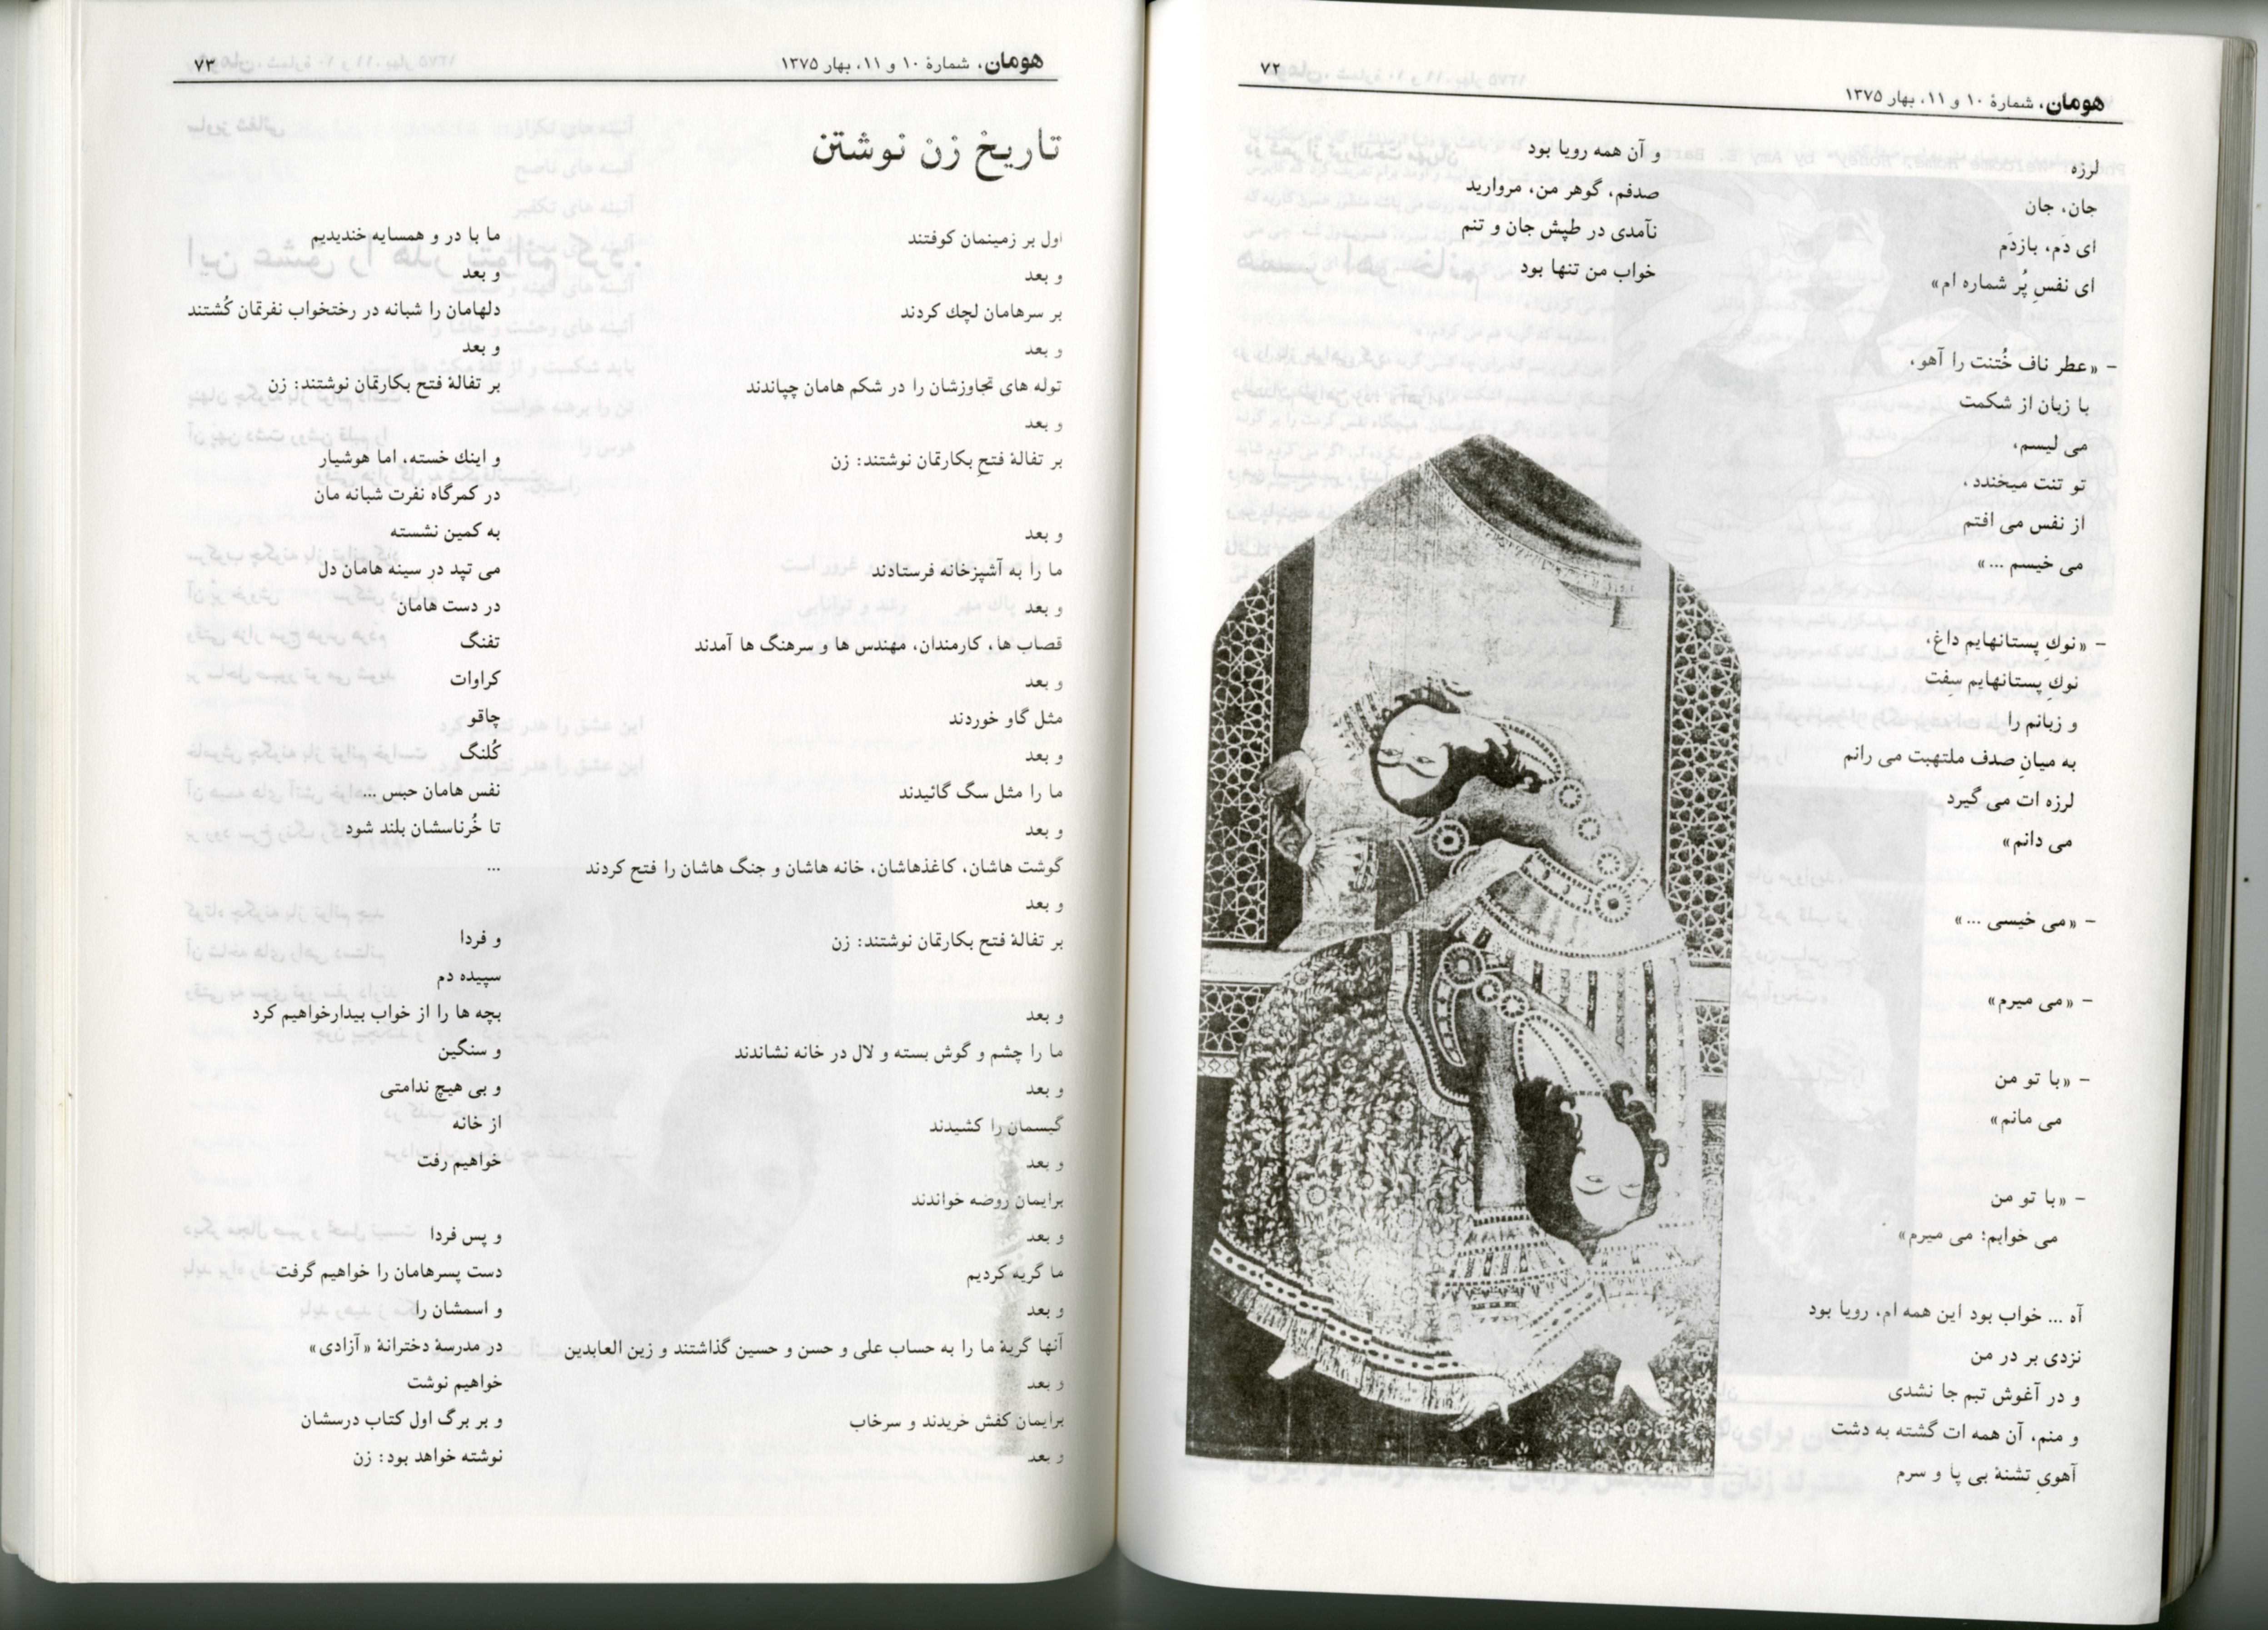 هومان، شمارهٔ ۱۰ و ۱۱، بهار ۱۳۷۵
۷۲
لرزه
جان، جان
ای دَم، بازدَم
ای نفسِ پُر شماره ام»
– «عطر ناف خُتنت را آهو،
با زبان از شکمت
می لیسم،
تو تنت میخندد،
از نفس می افتم
می خیسم ...»
– «نوكِ پستانهایم داغ،
نوكِ پستانهایم سِفت
و زبانم را
به میانِ صدف ملتهبت می رانم
لرزه ات می گیرد
می دانم»
– «می خیسی ...»
– «می میرم»
– «با تو من
می مانم»
– «با تو من
می خوابم؛ می میرم»
آه ... خواب بود این همه ام، رویا بود
نزدی بر در من
و در آغوش تبم جا نشدی
و منم، آن همه ات گشته به دشت
آهویِ تشنهٔ بی پا و سرم
و آن همه رویا بود
صدفم، گوهر من، مروارید
نآمدی در طپش جان و تنم
خواب من تنها بود
هومان، شمارهٔ ۱۰ و ۱۱، بهار ۱۳۷۵
۷۳
تاریخ زن نوشتن
اول بر زمینمان کوفتند
و بعد
بر سرهامان لچك کردند
و بعد
توله های تجاوزشان را در شکم هامان چپاندند
و بعد
بر تفالهٔ فتحِ بکارتمان نوشتند: زن
و بعد
ما را به آشپزخانه فرستادند
و بعد
قصاب ها، کارمندان، مهندس ها و سرهنگ ها آمدند
و بعد
مثل گاو خوردند
و بعد
ما را مثل سگ گائیدند
و بعد
گوشت هاشان، کاغذهاشان، خانه هاشان و جنگ هاشان را فتح کردند
و بعد
بر تفالهٔ فتح بکارتمان نوشتند: زن
و بعد
ما را چشم و گوش بسته و لال در خانه نشاندند
و بعد
گیسمان را کشیدند
و بعد
برایمان روضه خواندند
و بعد
ما گریه کردیم
و بعد
آنها گریهٔ ما را به حساب علی و حسن و حسین گذاشتند و زین العابدین
و بعد
برایمان کفش خریدند و سرخاب
و بعد
ما با در و همسایه خندیدیم
و بعد
دلهامان را شبانه در رختخواب نفرتمان کُشتند
و بعد
بر تفالهٔ فتح بکارتمان نوشتند: زن
و اینك خسته، اما هوشیار
در کمرگاه نفرت شبانه مان
به کمین نشسته
می تپد در سینه هامان دل
در دست هامان
تفنگ
کراوات
چاقو
کُلنگ
نفس هامان حبس ...
تا خُرناسشان بلند شود
...
و فردا
سپیده دم
بچه ها را از خواب بیدارخواهیم کرد
و سنگین
و بی هیچ ندامتی
از خانه
خواهیم رفت
و پس فردا
دست پسرهامان را خواهیم گرفت
و اسمشان را
در مدرسهٔ دخترانهٔ «آزادی»
خواهیم نوشت
و بر برگ اول کتاب درسشان
نوشته خواهد بود: زن